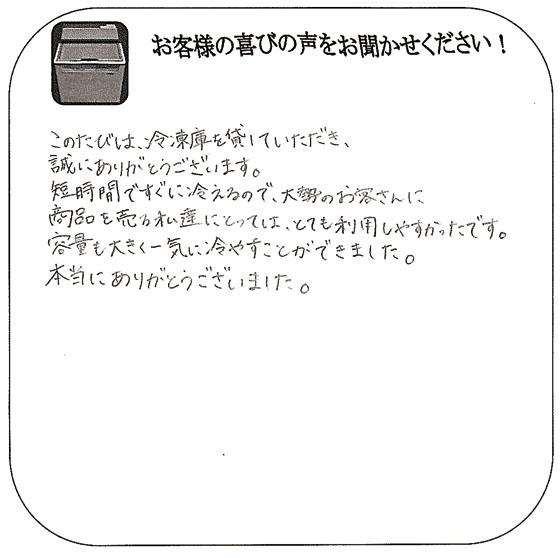 お客様の喜びの声をお聞かせください！
このたびは、冷凍庫を貸していただき、
誠にありがとうございます。
短時間ですぐに冷えるので、大勢のお客さんに
商品を売る私達にとっては、とても利用しやすかったです。
容量も大きく一気に冷やすことができました。
本当にありがとうございました。